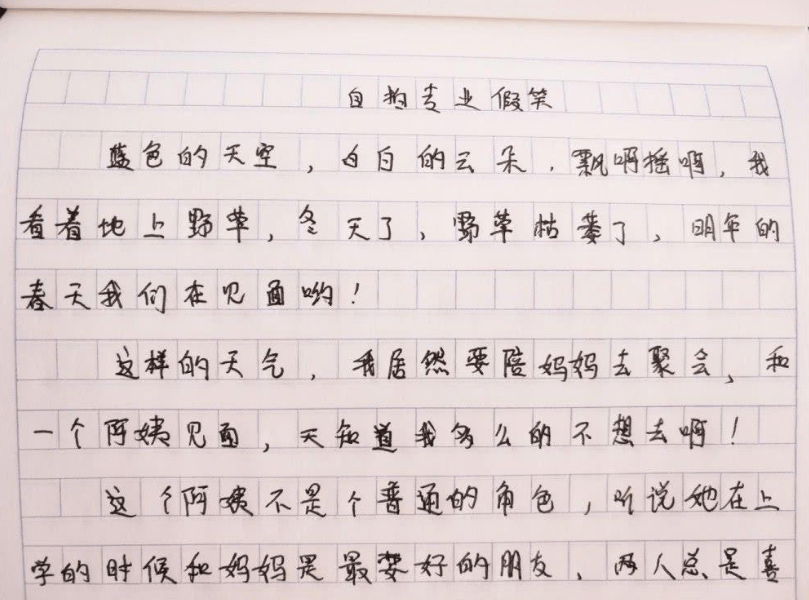 自拍专业假笑
蓝色的天空，白白的云朵，飘啊摇啊，我
看着地上野草，冬天了，野草枯萎了，明年的
春天我们在见面哟！
这样的天气，我居然要陪妈妈去聚会，和
一个阿姨见面，天知道我多么的不想去啊！
这个阿姨不是个普通的角色，听说她在上
学的时候和妈妈是最要好的朋友、两人总是喜